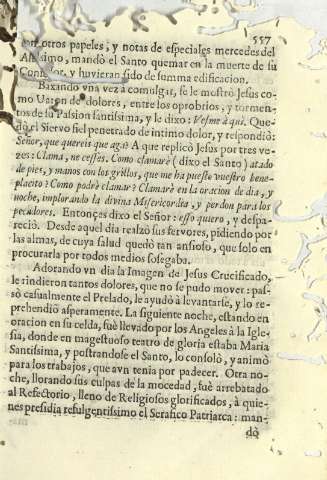 557
otros papeles, y notas de especiales mercedes del
simo, mandò el Santo quemar en la muerte de su
y huvieran sido de summa edificacion.
Baxando vna vez à comulgar, se le mostrò Jesus co-
mo Varon de dolores, entre los oprobrios, y tormen-
tos de su Passion santissima, y le dixo: Vesme à qui. Que-
dò el Siervo fiel penetrado de intimo dolor, y respondiò:
Señor, que quereis que aga? A que replicò Jesus por tres ve-
zes: Clama, ne cesses. Como clamarè (dixo el Santo) atado
de pies, y manos con los grillos, que me ha puesto vuestro bene-
placito? Como podrè clamar? Clamarè en la oracion de dia, y
noche, implorando la divina Misericordia, y perdon para los
pecadores. Entonçes dixo el Señor: esso quiero, y despa-
reciò. Desde aquel dia realzò sus fervores, pidiendo por
las almas, de cuya salud quedò tan ansioso, que solo en
procurarla por todos medios sosegaba.
Adorando vn dia la Imagen de Jesus Crucificado,
le rindieron tantos dolores, que no se pudo mover: pas-
sò casualmente el Prelado, le ayudò à levantarse, y lo re-
prehendiò asperamente. La siguiente noche, estando en
oracion en su celda, fuè llevado por los Angeles à la Igle-
sia, donde en magestuoso teatro de gloria estaba Maria
Santissima, y postrandose el Santo, lo consolò, y animò
para los trabajos, que avn tenia por padecer. Otra no-
che, llorando sus culpas de la mocedad, fuè arrebatado
al Refectorio, lleno de Religiosos glorificados, à quie-
nes presidia refulgentissimo el Serafico Patriarca: man-
dò